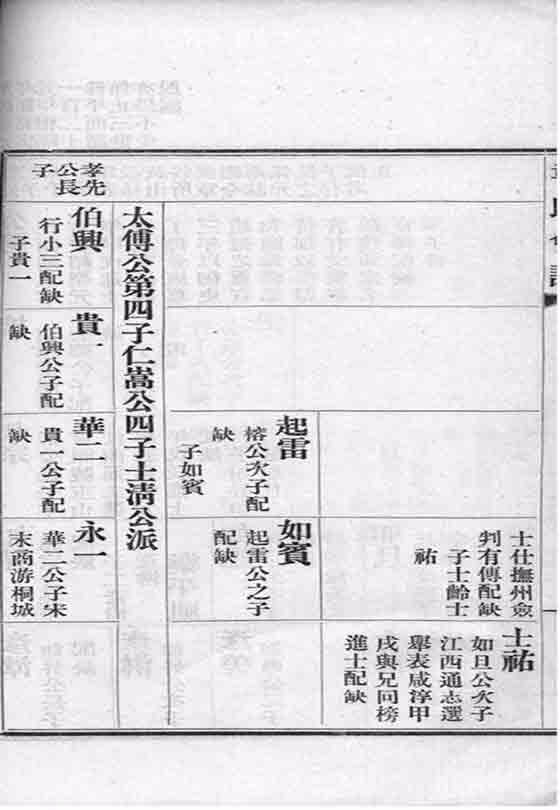 士仕撫州僉
判有傳配缺
子士齡士
祐
士祐
如旦公次子
江西通志選
舉表咸淳甲
戌與兄同榜
進士配缺
起雷
榕公次子配
缺
子如賓
如賓
起雷公之子
配缺
太傅公第四子仁嵩公四子士清公派
孝先
公長
子
伯興
行小三配缺
子貴一
貴一
伯興公子配
缺
華二
貴一公子配
缺
永一
華二公子宋
末商游桐城